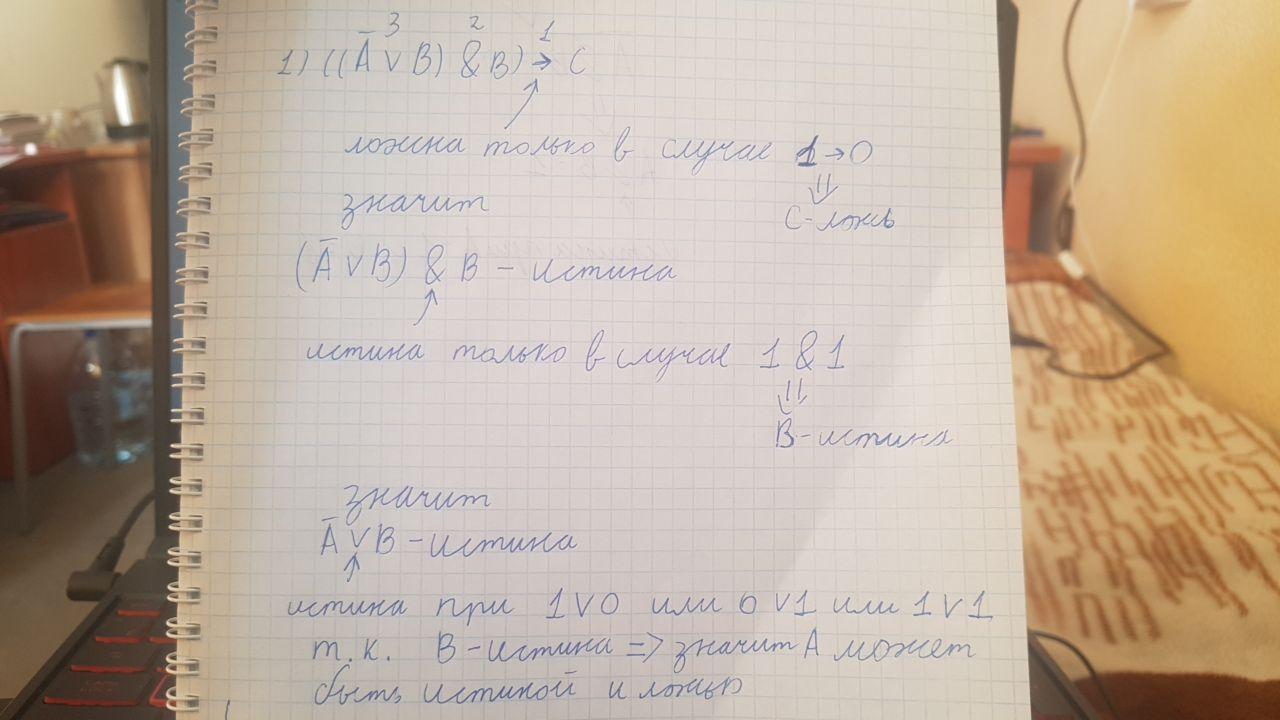 3 2 1
1) ((Ā ∨ B) & B) → C
ложна только в случае 1 → 0
значит
C - ложь
(Ā ∨ B) & B - истина
истина только в случае 1 & 1
B - истина
значит
Ā ∨ B - истина
истина при 1 ∨ 0 или 0 ∨ 1 или 1 ∨ 1
т.к. B - истина => значит A может
быть истиной и ложью